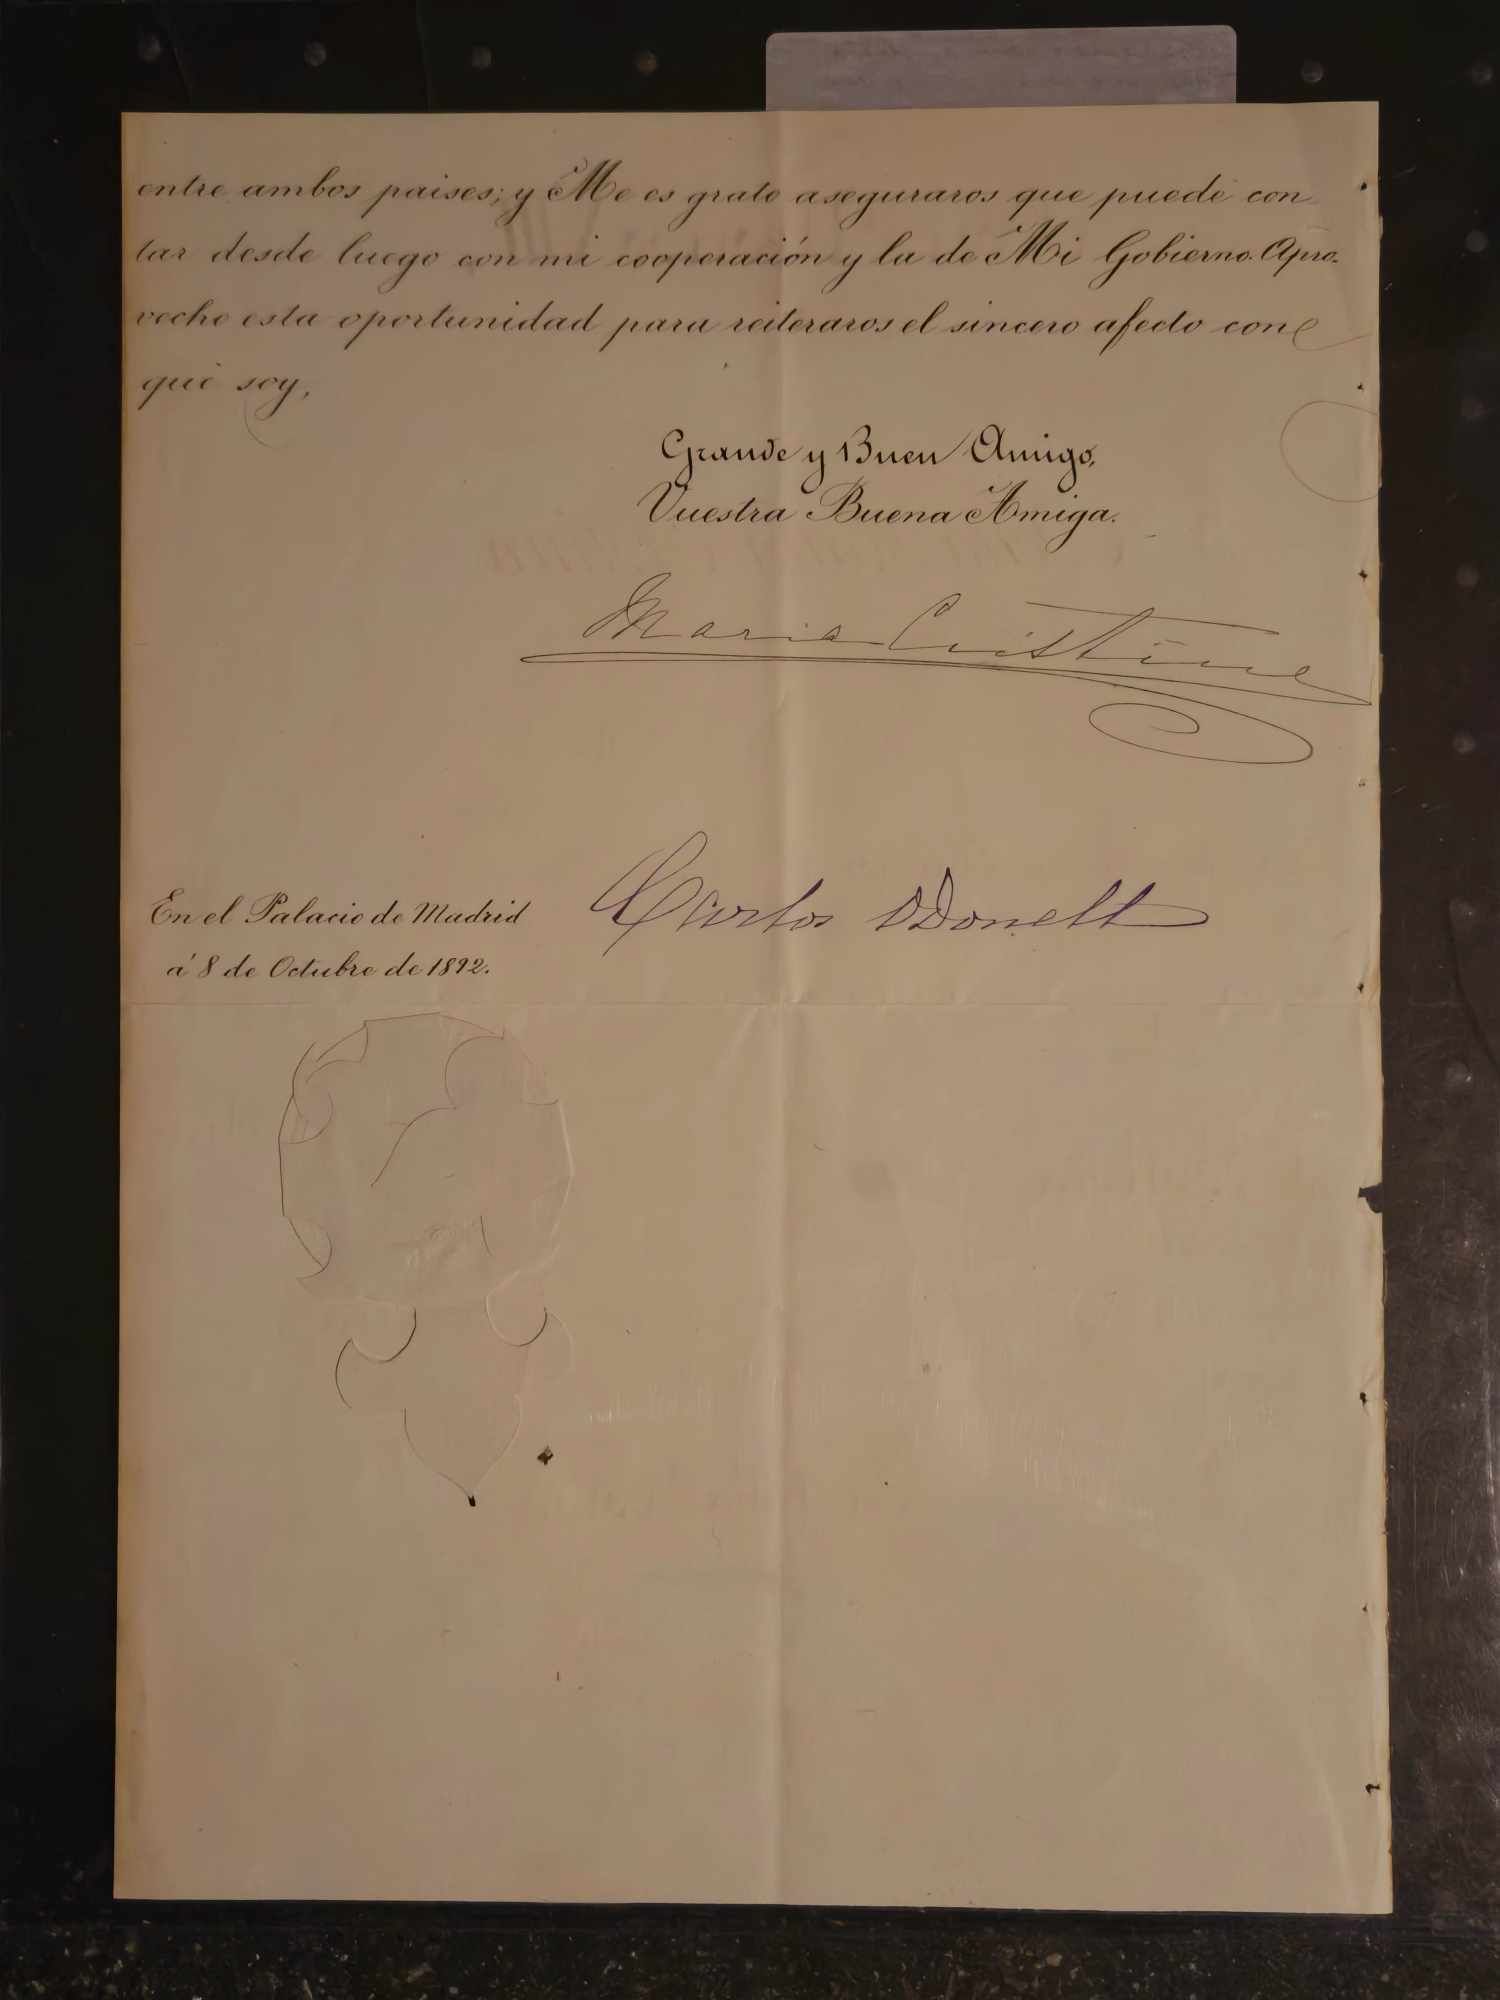 entre ambos paises; y Me es grato aseguraros que puede con
tar desde luego con mi cooperación y la de Mi Gobierno. Apro-
vecho esta oportunidad para reiteraros el sincero afecto con
que soy,
Grande y Buen Amigo,
Vuestra Buena Amiga.
Maria Cristina
Carlos O'Donell
En el Palacio de Madrid
á 8 de Octubre de 1892.